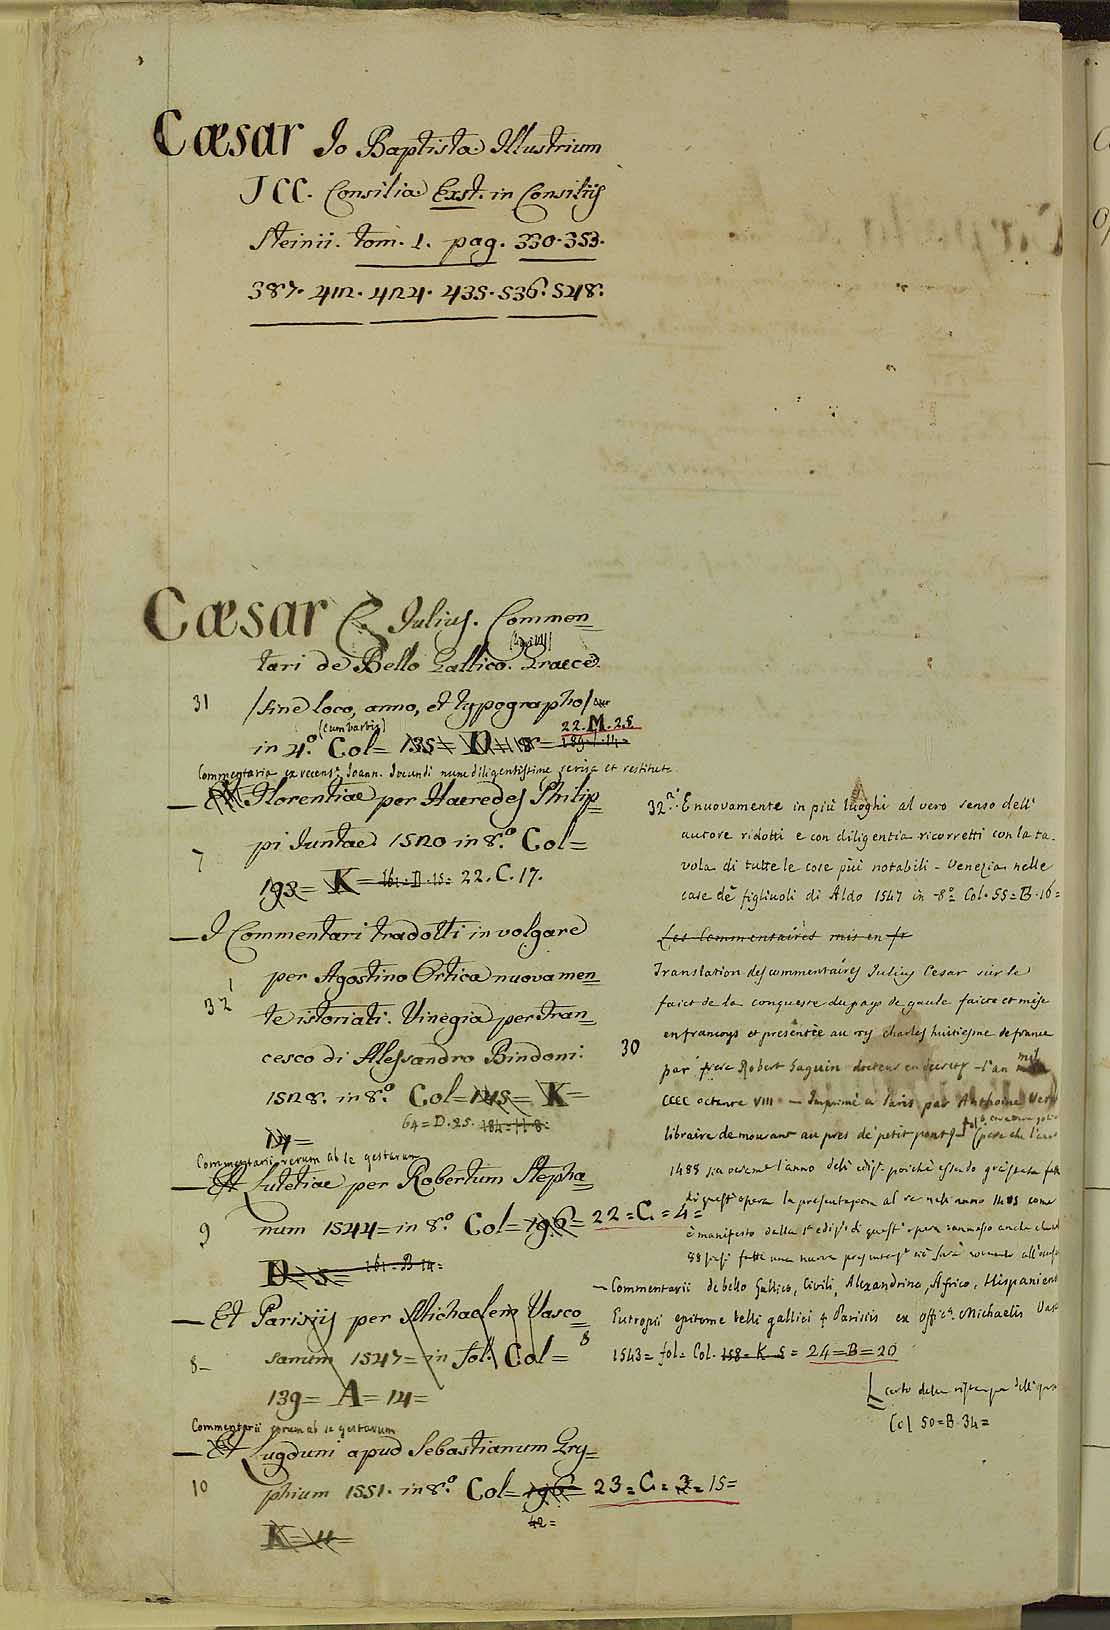 Cæsar Jo Baptista Illustrium
JCC. Consilia Exst. in Consiliis
Steinii. tom. 1. pag. 330. 353.
387. 412. 424. 435. 536. 548.
Cæsar C. Julius. Commen=
tari de Bello Gallico. Graece.
31 /sine loco, anno, et typographo/
(cum varbis) 22.M.25
in 4.º Col= 135= D= 8= 189.1.14=
Commentaria ex recensº Joann. Jocundi nunc diligentissime revisa et restituta
— Et Florentiae per Haeredes Philip=
7 pi Juntae 1520 in 8.º Col=
193= K= 161=D.15= 22.C.17.
— I Commentari tradotti in volgare
per Agostino Ortica nuovamen=
32¹ te istoriati. Vinegia per Fran=
cesco di Alessandro Bindoni.
1528. in 8.º Col= 145= K=
64=D.25. 184=H.8=
14=
Commentarii rerum ab se gestarum
— Et Lutetiae per Robertum Stepha=
9 num 1544= in 8.º Col= 196= 22=C.=4=
D=5= 161=B.14=
— Et Parisiis per Michaelem Vasco=
8- sanum 1547= in fol. Col=
139= A=14=
Commentarii rerum ab se gestarum
— Et Lugduni apud Sebastianum Gry=
10 phium 1551. in 8.º Col= 196= 23=C.=3=15=
42=
K=11=
32² E nuovamente in più luoghi al vero senso dell'
autore ridotti e con diligentia ricorretti con la ta-
vola di tutte le cose più notabili - Venezia nelle
case de figliuoli di Aldo 1547 in 8º= Col. 55=B.16=
Les Commentaires mis en fr
Translation des commentaires Julius Cesar sur le
faict de la conqueste du pays de gaule faicte et mise
en francoys et presentée au roy charles huitiesme de france
30 par frere Robert Gaguin docteur en decretz - l'an mil
CCCC octante VIII — Imprimé a Paris par Anthoine
libraire demourant au pres de petit pont
1488 l'anno dell' ediz. poiché essendo
di quest' opera la presentazione al re nell'anno come
è manifesto dalla 1ª edizº di quest' opera
88 fatta una nuova
— Commentarii de bello Gallico, Civili, Alexandrino, Africo,
Eutropii epitome belli gallici & Parisiis ex officª Michaelis
1543= fol= Col. 158=K.5= 24=B=20
Col 50=B.34=